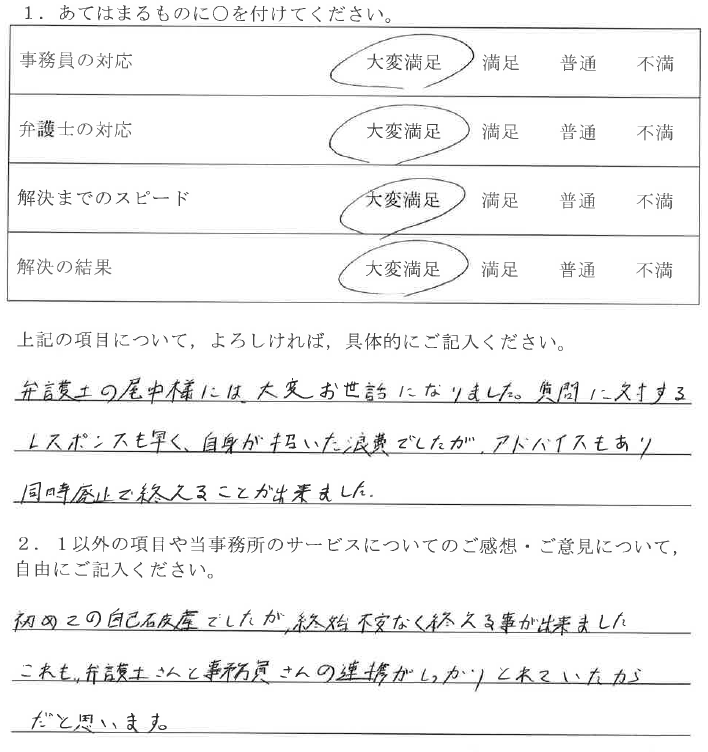 １．あてはまるものに○を付けてください。
事務員の対応 大変満足 満足 普通 不満
弁護士の対応 大変満足 満足 普通 不満
解決までのスピード 大変満足 満足 普通 不満
解決の結果 大変満足 満足 普通 不満
上記の項目について，よろしければ，具体的にご記入ください。
弁護士の尾中様には、大変お世話になりました。質問に対する
レスポンスも早く、自身が招いた浪費でしたが、アドバイスもあり
同時廃止で終えることが出来ました。
２．１以外の項目や当事務所のサービスについてのご感想・ご意見について，
自由にご記入ください。
初めての自己破産でしたが、終始不安なく終える事が出来ました
これも、弁護士さんと事務員さんの連携がしっかりとれていたから
だと思います。